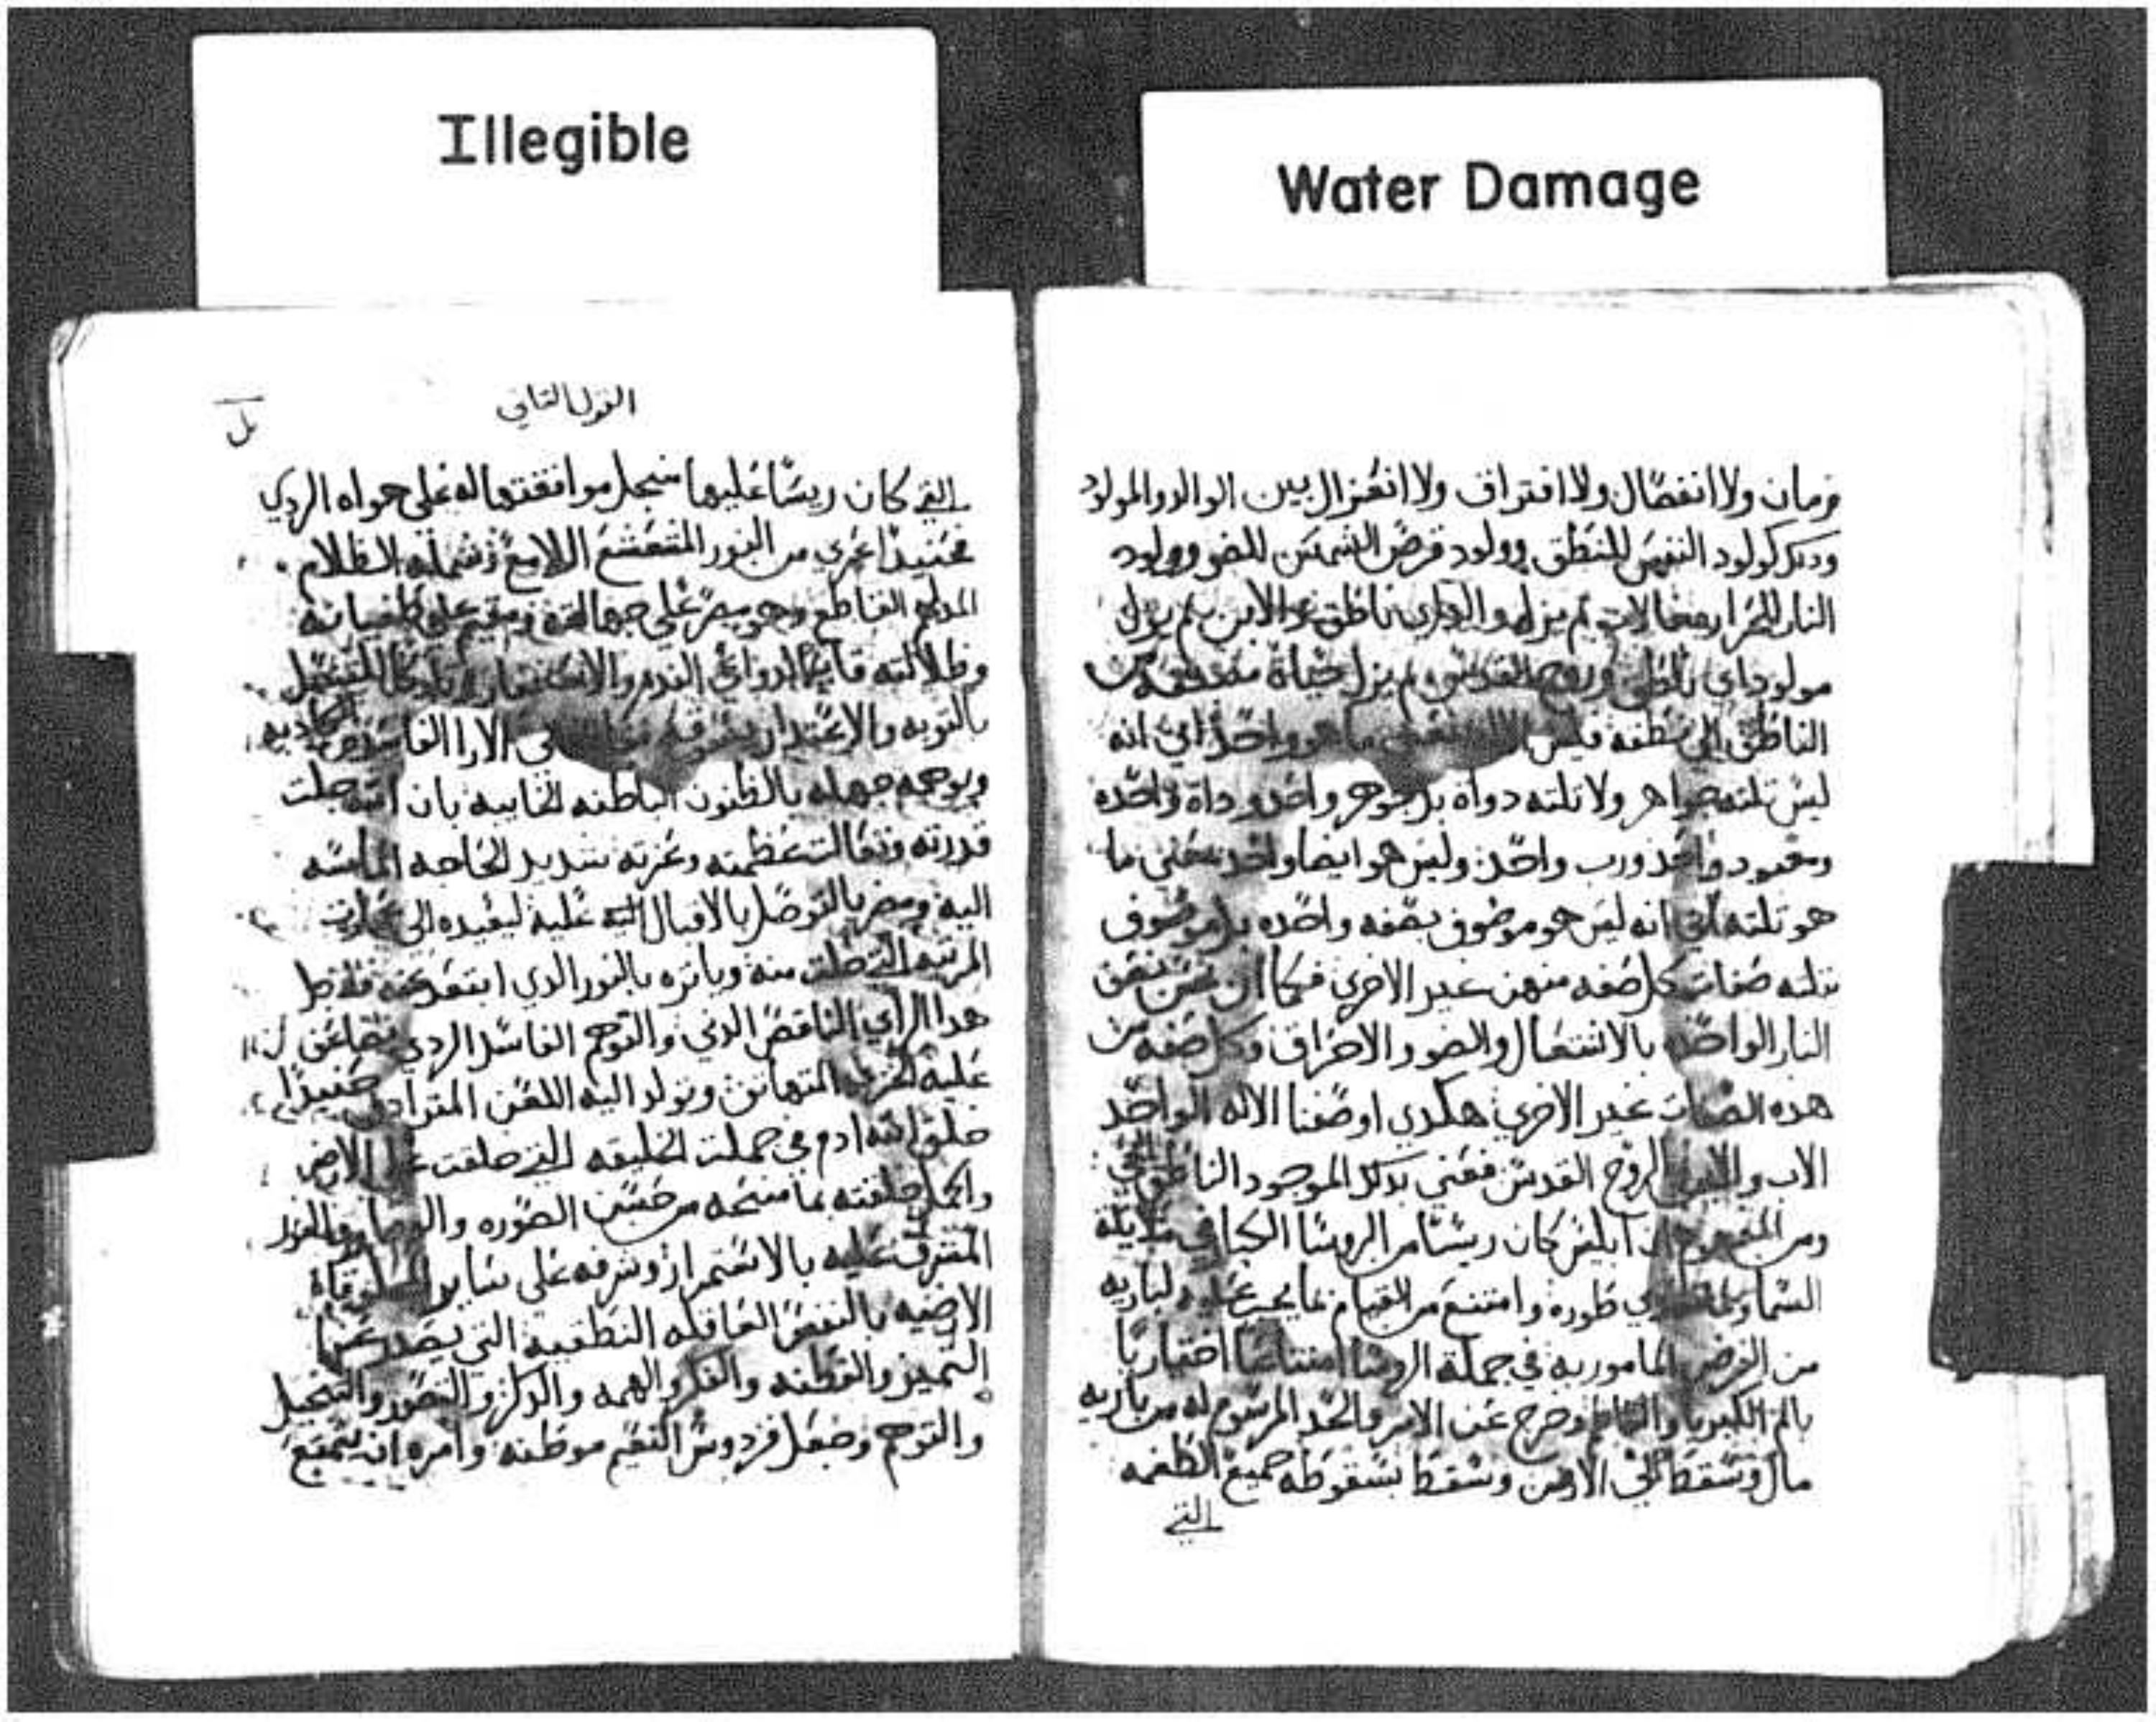 Illegible
Water Damage
زمان ولا انفصال ولا افتراق ولا انعزال بين الوالد والمولود
ودلك كولود النفس للنطق وولود قرص الشمس للضو وولود
النار للحرارة لم يزل ناطق والابن لم يزل
مولود اي نطق وروح القدس لم يزل حياة
الناطق الى نطقه فليس واحد اي انه
ليس تلته جواهر ولا تلته دواة بل جوهر واحد وداة واحده
ومعبود واحد ورب واحد وليس هو ايضا واحد بمعنى ما
هو تلته اي انه ليس هو موصوف بصفه واحده بل موصوف
بتلته صفات كل صفه منهن غير الاخري فكما ان نحن نصف
النار الواحده بالاشتعال والضو والاحراق وكل صفه من
هده الصفات غير الاخري هكدي اوصفنا الاله الواحد
الاب والابن والروح القدس فنعني بدلك الموجود الناطق الحي
ومن ان ابليس كان ريسًا من الروسا الكبار في ملايكة
السما طوره وامتنع من القيام بما يجب عليه لباريه
من الفرض المامور به في جملة الروسا امتناعا اختياريا
بالم الكبريا وخرج عن الامر والحد المرسوم له من باريه
مال وسقط الى الارض وسقط بسقوطه جميع الطغمه
التي
القول التاني
التي كان ريسًا عليها من اجل موافقتها له على هواه الردي
فحنيدا عري من النور المتشعشع اللامع وشمله الظلام
المدلهم القاطع وهو مصر على جهالته ومقيم على طغيانه
وظلالته الندم والاستغفار
بالتوبه والاعتدار الارا الفاسده
ويوهمه جهله بالظنون الباطنه الخايبه بان الله جلت
قدرته وتعالت عظمته وعزته شديد الحاجه الماسه
اليه بالاقبال اليه عليه ليعيده الى
المرتبه التي منه بالنور الدي ابتعد عنه
هدا الراي الناقص الدني والتوهم الفاسد الردي تضاعف
عليه الخزي المتهاتن وتولد اليه اللعن المترادف حنيدا
خلق الله ادم في جملت الخليقه التي خلقت على الارض
واكمل خلقته بما منحه من حسن الصوره والبها والنور
المشرق عليه بالاستمرار وشرفه على ساير المخلوقاة
الارضيه بالنفس العاقله النطقيه التي يصدر عنها
التمييز والفطنه والفكر والهمه والدكر والتصور والتخيل
والتوهم وجعل فردوس النعيم موطنه وامره ان يتمتع